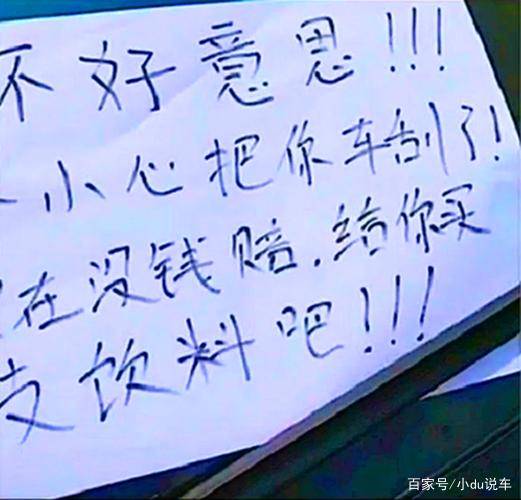 不好意思!!!
小心把你车刮了!
在没钱赔.给你买
支饮料吧!!!
百家号/小du说车